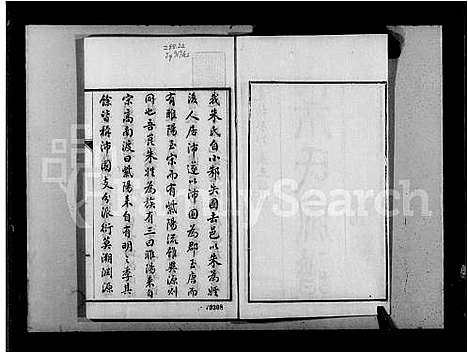 我朱氏自小邾失國去邑以朱為姓
後人居沛遂以沛國為郡至唐而
有睢陽玉宗而有紫陽流雖異源則
同也吾莒朱姓為族有三曰睢陽來自
宗高南渡曰紫陽來自有明之季其
餘皆稱沛國支分派衍莫溯淵源
FamilySearch